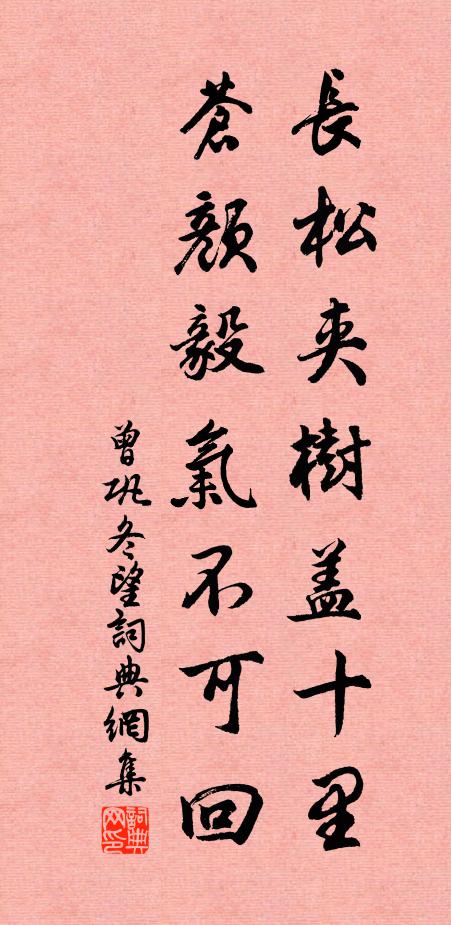 長松夾樹盖十里
蒼顔毅氣不可回
曾巩冬望詞典網集
詞典网印